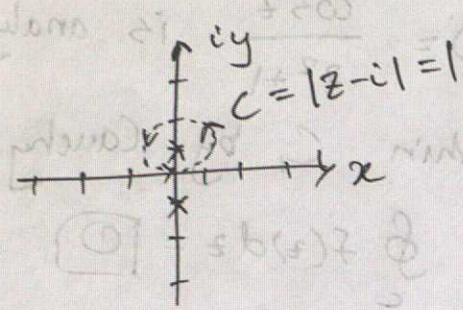 iy
C = |z-i| = 1
x